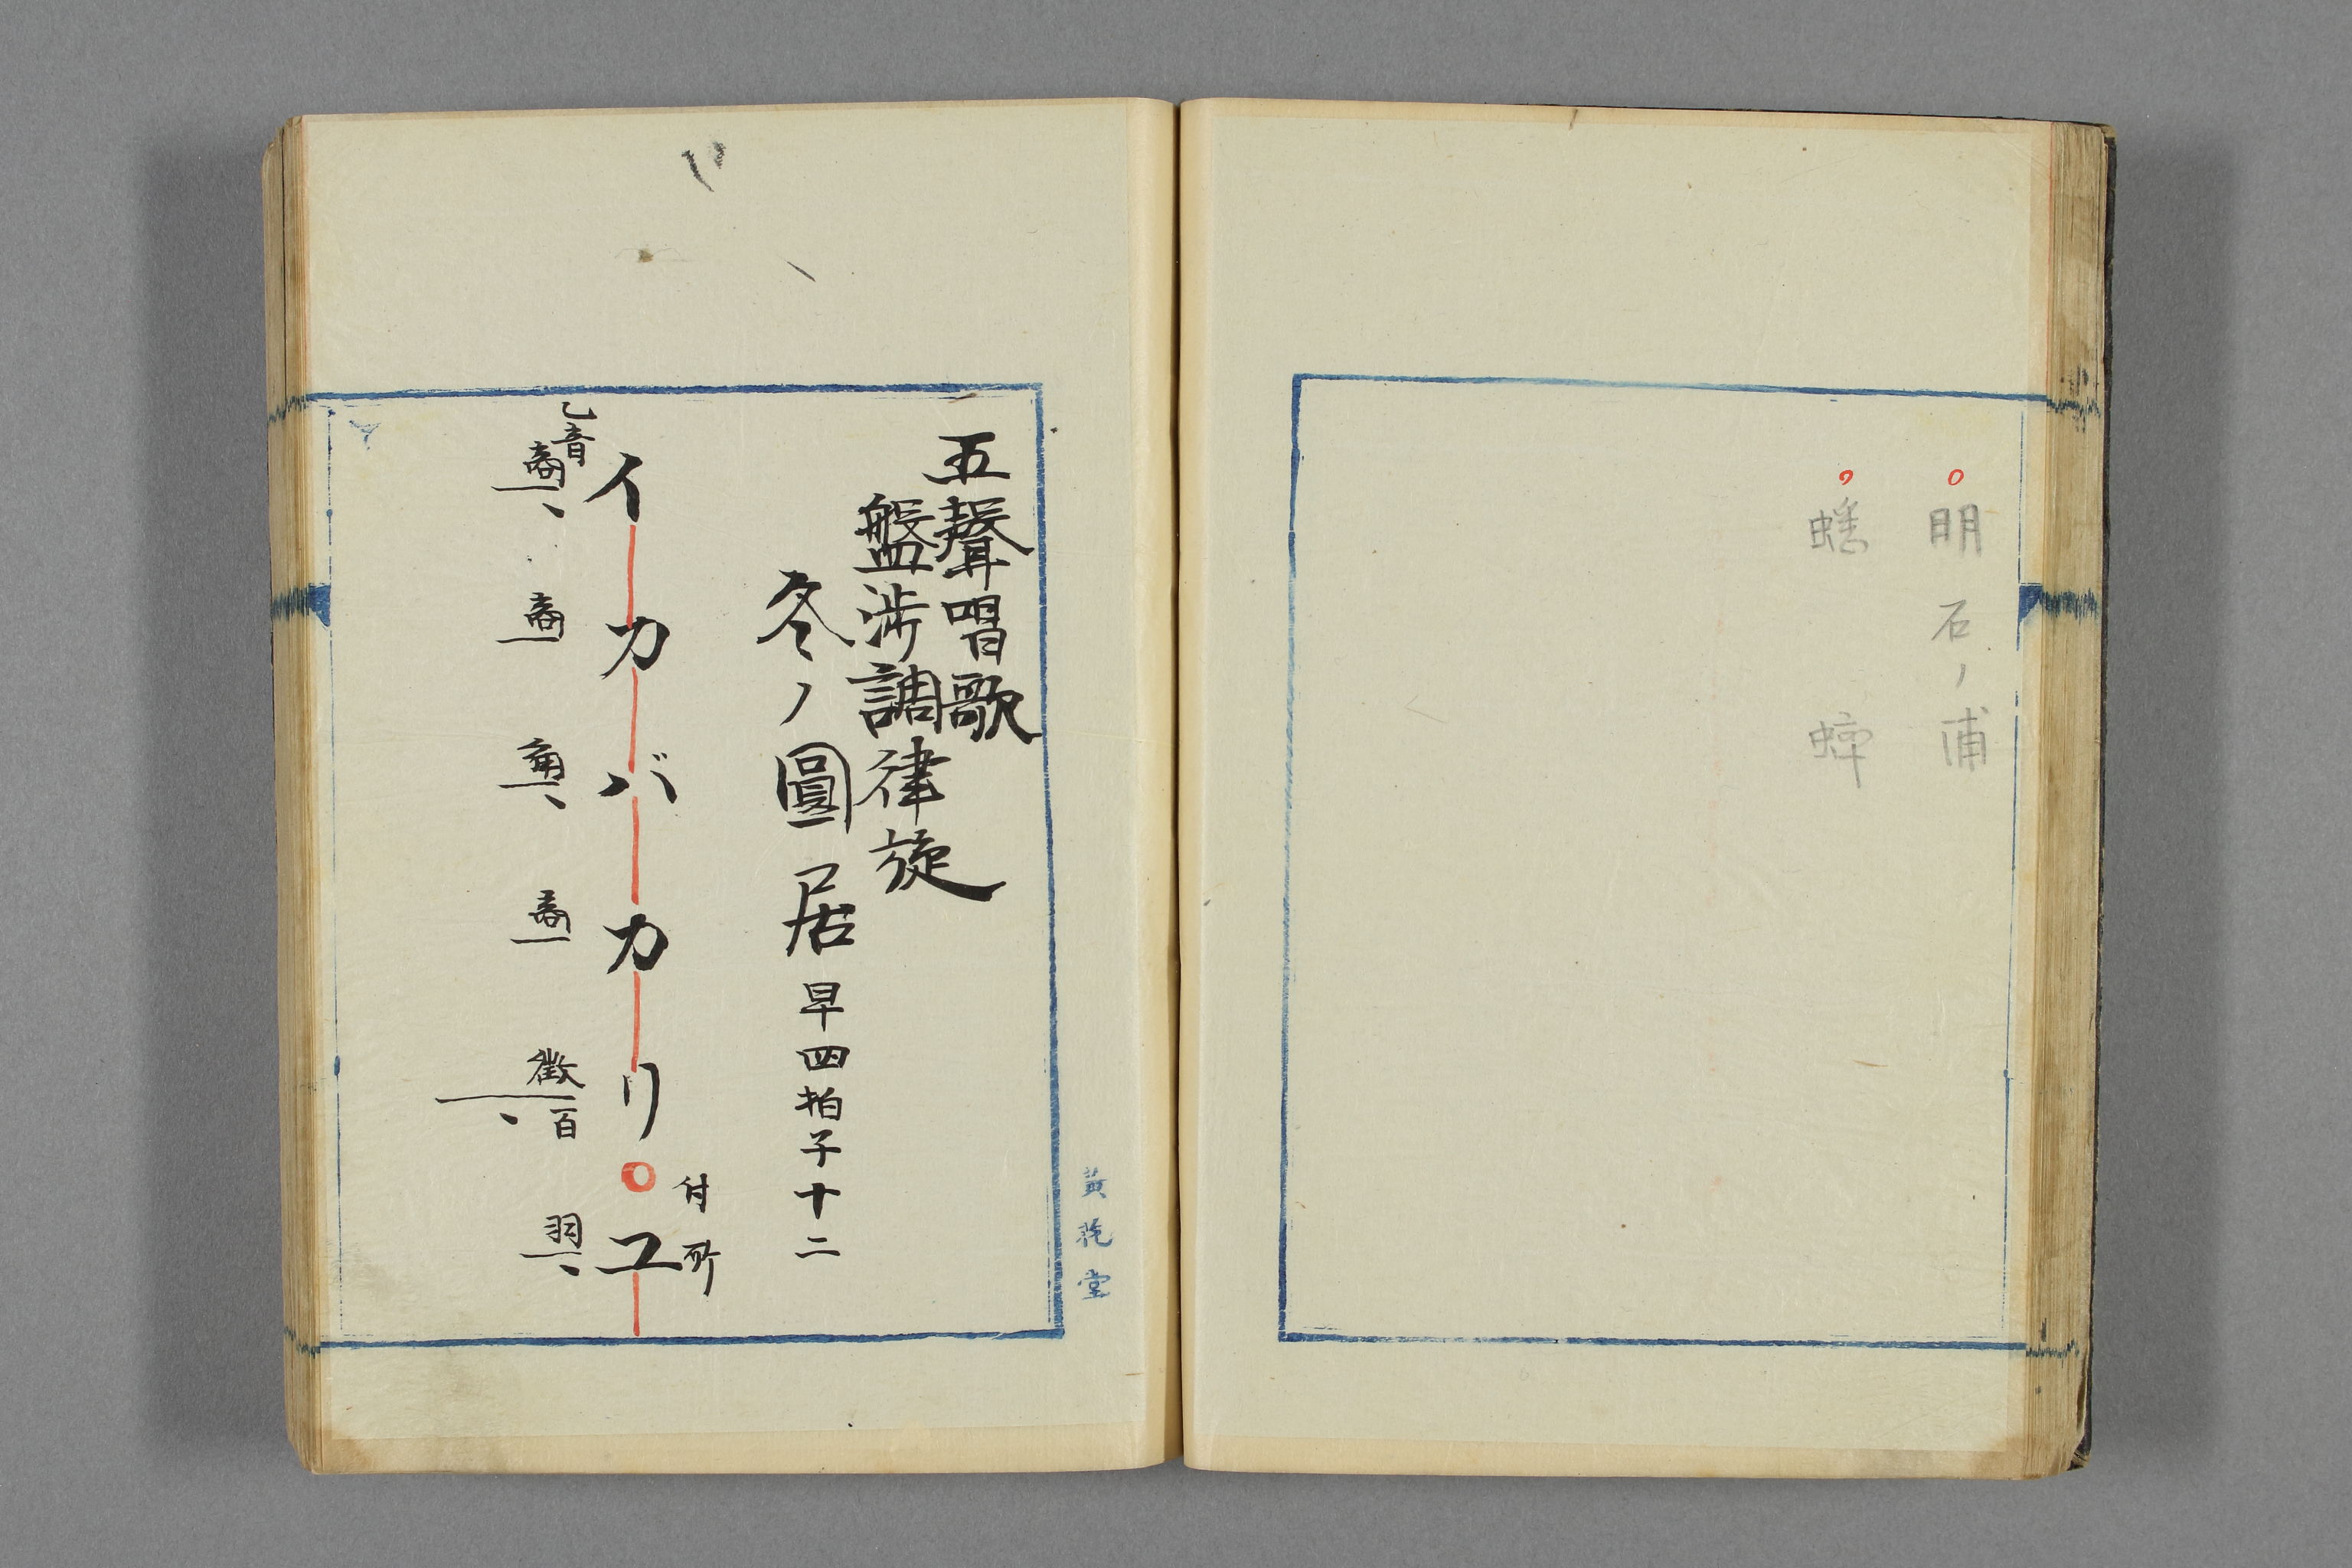 明石ノ浦
蟋蟀
五聲唱歌
盤渉調律旋
冬ノ圓居 早四拍子十二
付所
イカバカリユ
乙音
商 商 角 商 徴 百 羽
堂